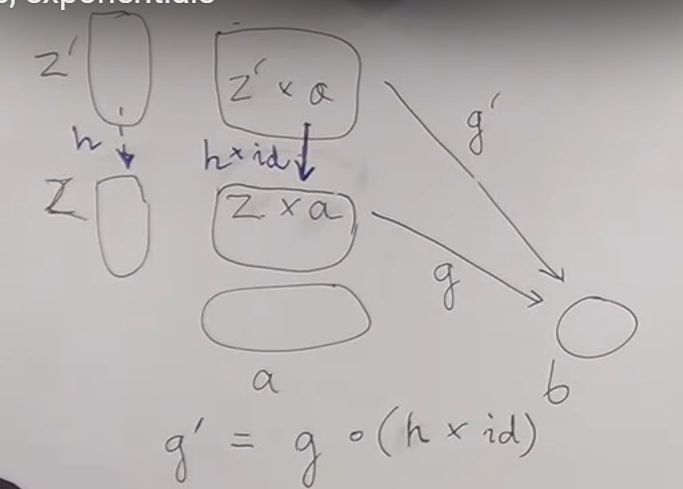 , exponentials
z'
z' × a
g'
h
h × id
z
z × a
g
a
b
g' = g ∘ (h × id)